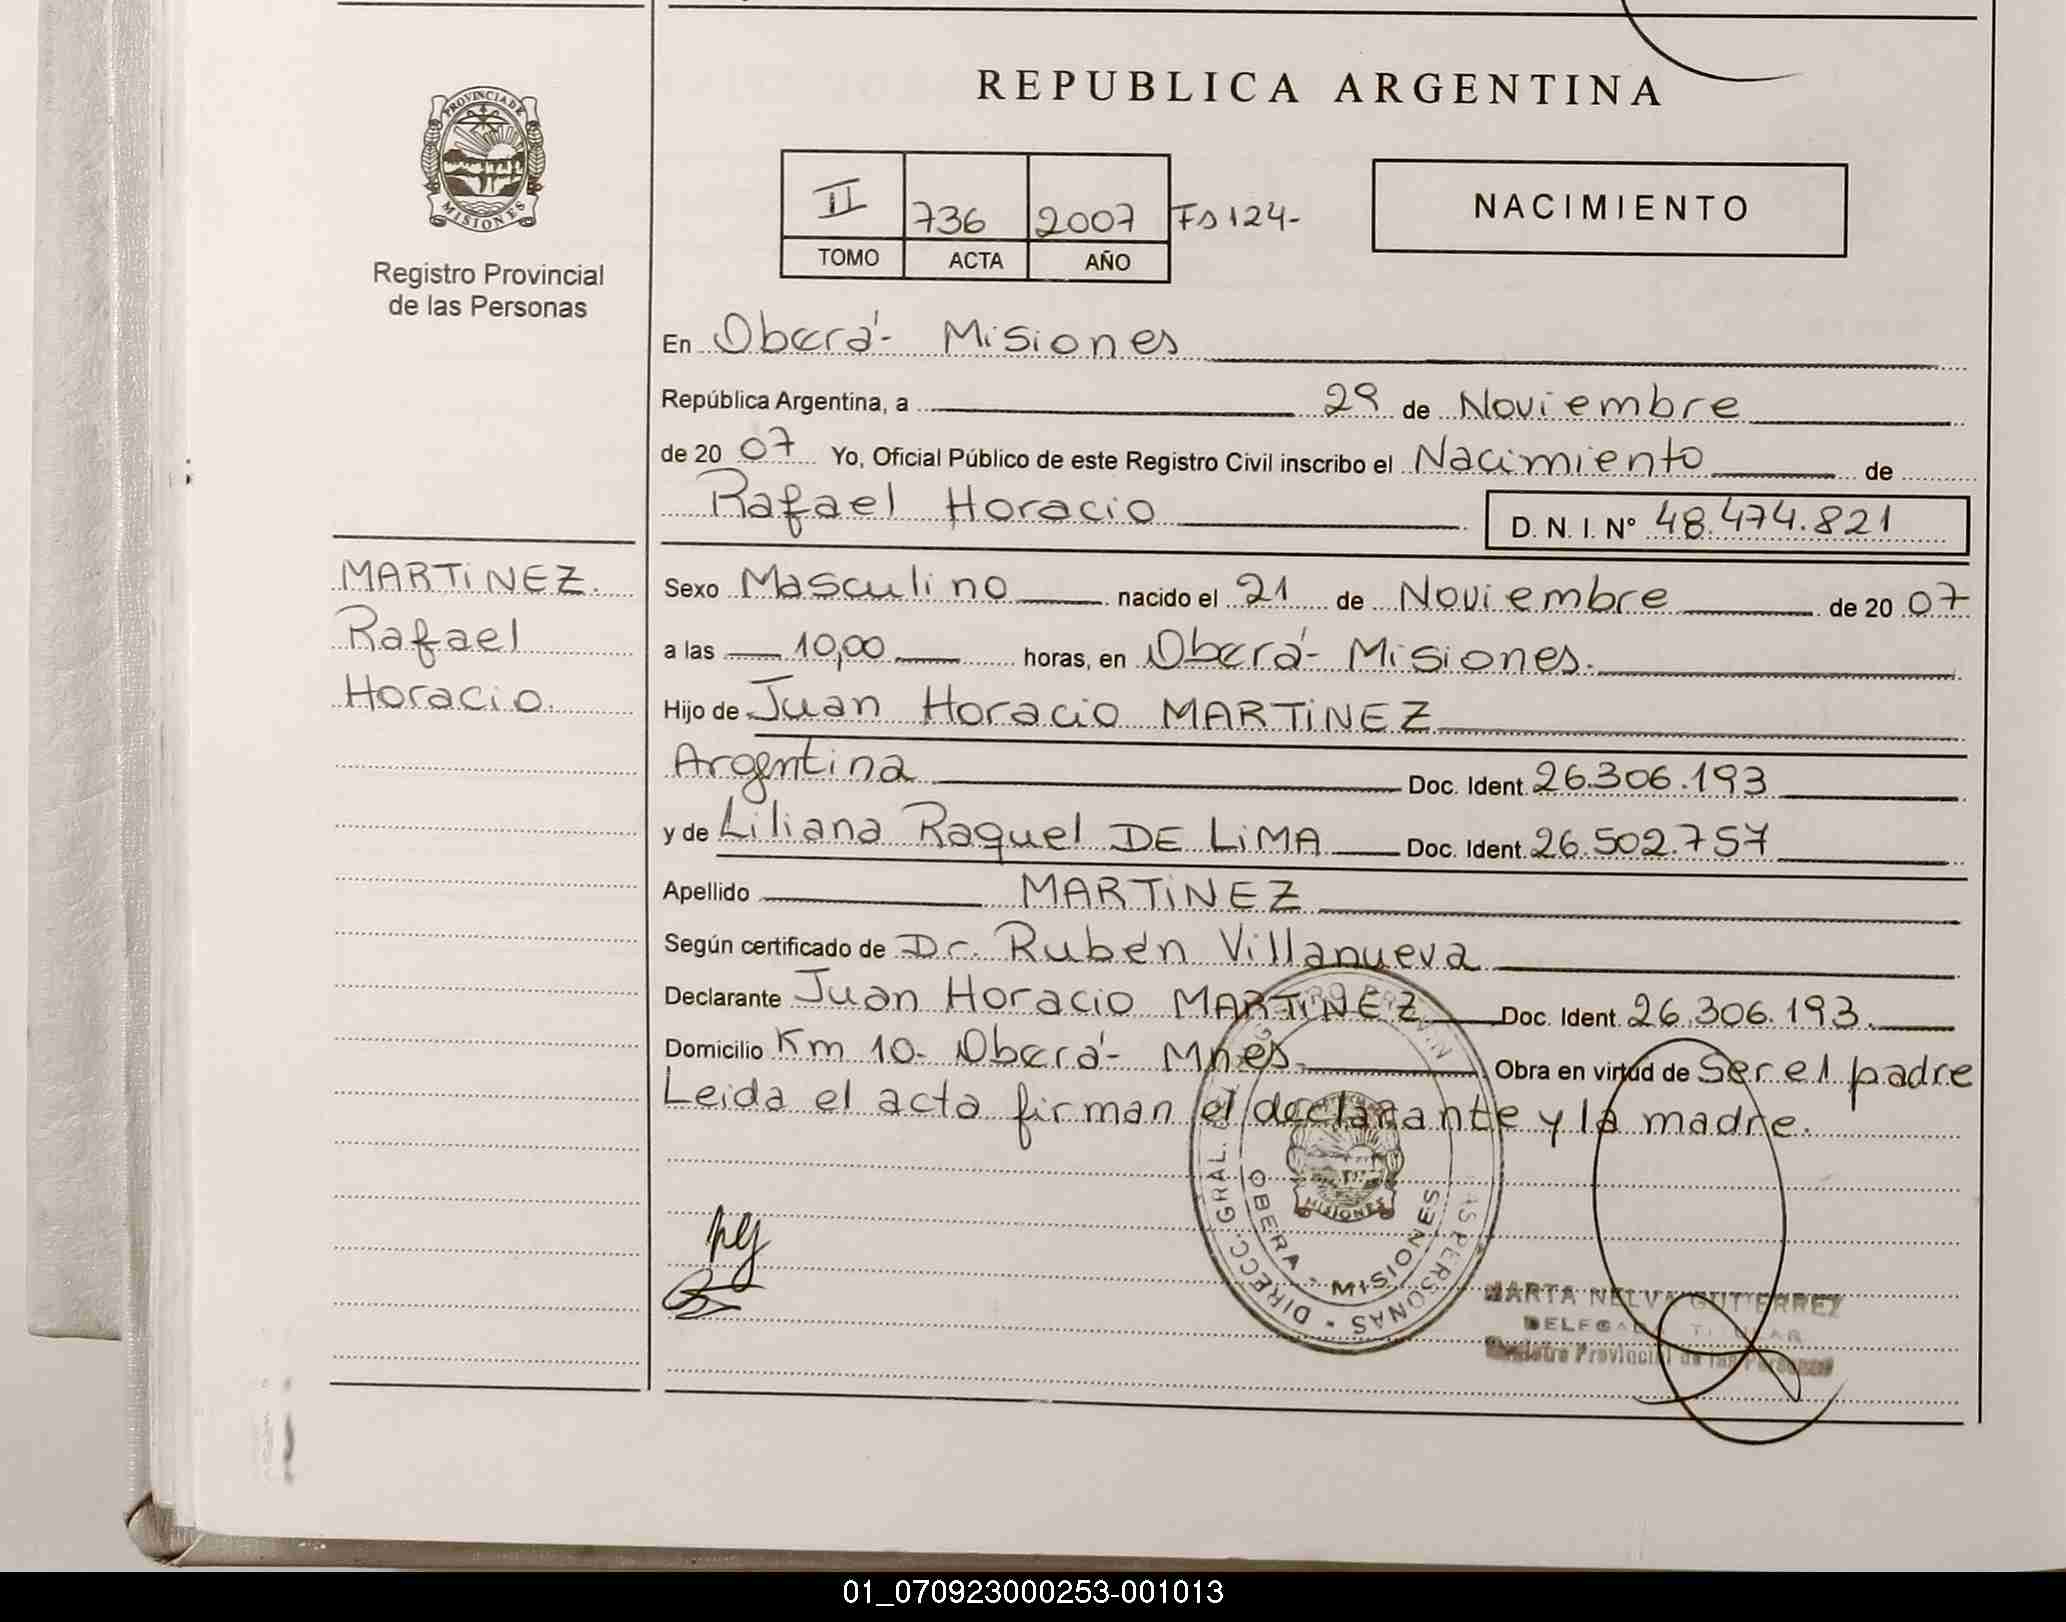 REPUBLICA ARGENTINA
PROVINCIA DE
MISIONES
Registro Provincial
de las Personas
II 736 2007 Fs 124-
TOMO ACTA AÑO
NACIMIENTO
En Oberá- Misiones
República Argentina, a 29 de Noviembre
de 20 07 Yo, Oficial Público de este Registro Civil inscribo el Nacimiento de
Rafael Horacio D. N. I. Nº 48.474.821
MARTiNEZ.
Rafael
Horacio.
Sexo Masculino nacido el 21 de Noviembre de 20 07
a las 10,00 horas, en Oberá- Misiones.
Hijo de Juan Horacio MARTiNEZ
Argentina Doc. Ident. 26.306.193
y de Liliana Raquel DE LiMA Doc. Ident. 26.502.757
Apellido MARTiNEZ
Según certificado de Dr. Rubén Villanueva
Declarante Juan Horacio MARTiNEZ Doc. Ident. 26.306.193.
Domicilio Km 10- Oberá- Mnes. Obra en virtud de Ser el padre
Leida el acta firman el declarante y la madre.
DIRECC. GRAL. PERSONAS
OBERA - MISIONES
MISIONES
MARTA NELVA GUTIERREZ
DELEGADA TITULAR
Registro Provincial de las Personas
01_070923000253-001013